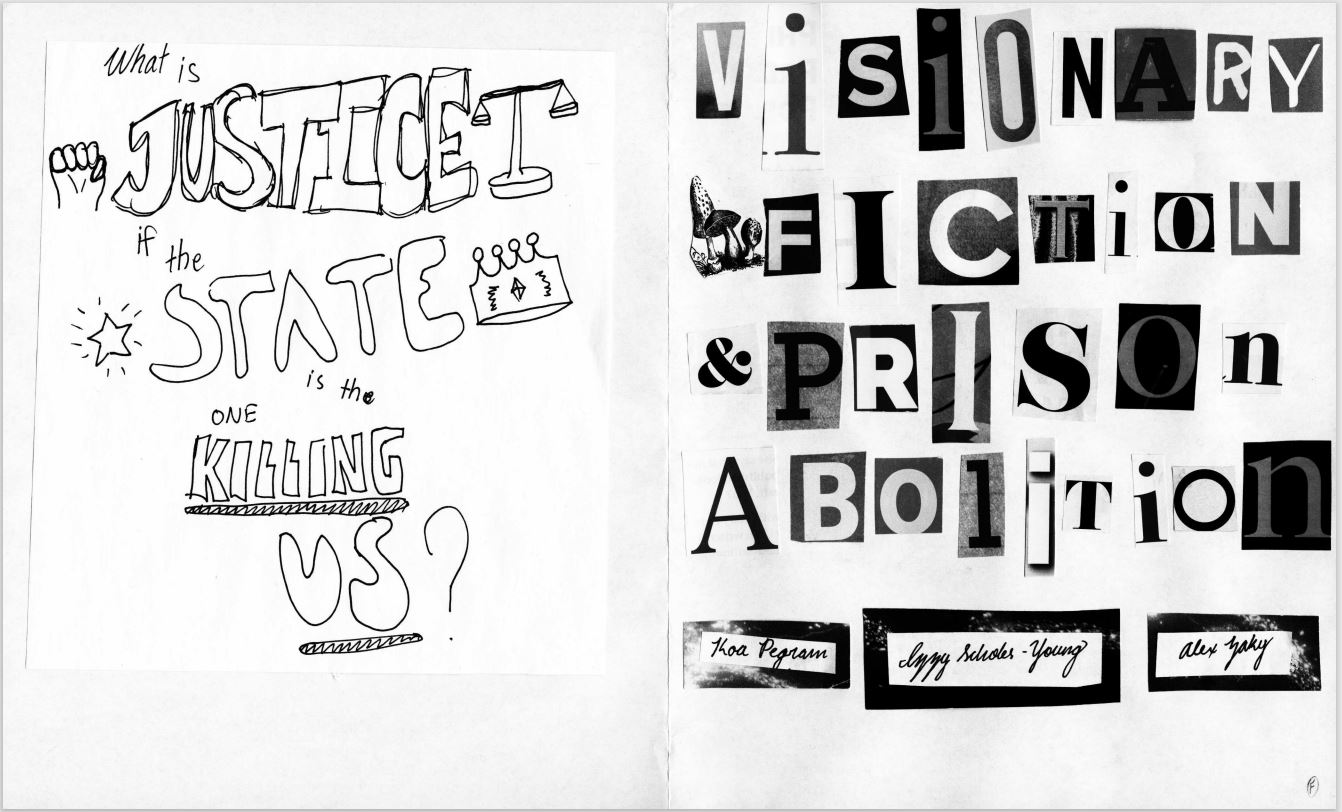 What is
JUSTICE
if the
STATE
is the
ONE
KILLING
US?
ViSiONARY
FICTiON
& PRISOn
ABOliTiOn
Koa Pegram
Izzy Scholes-Young
Alex Zaky